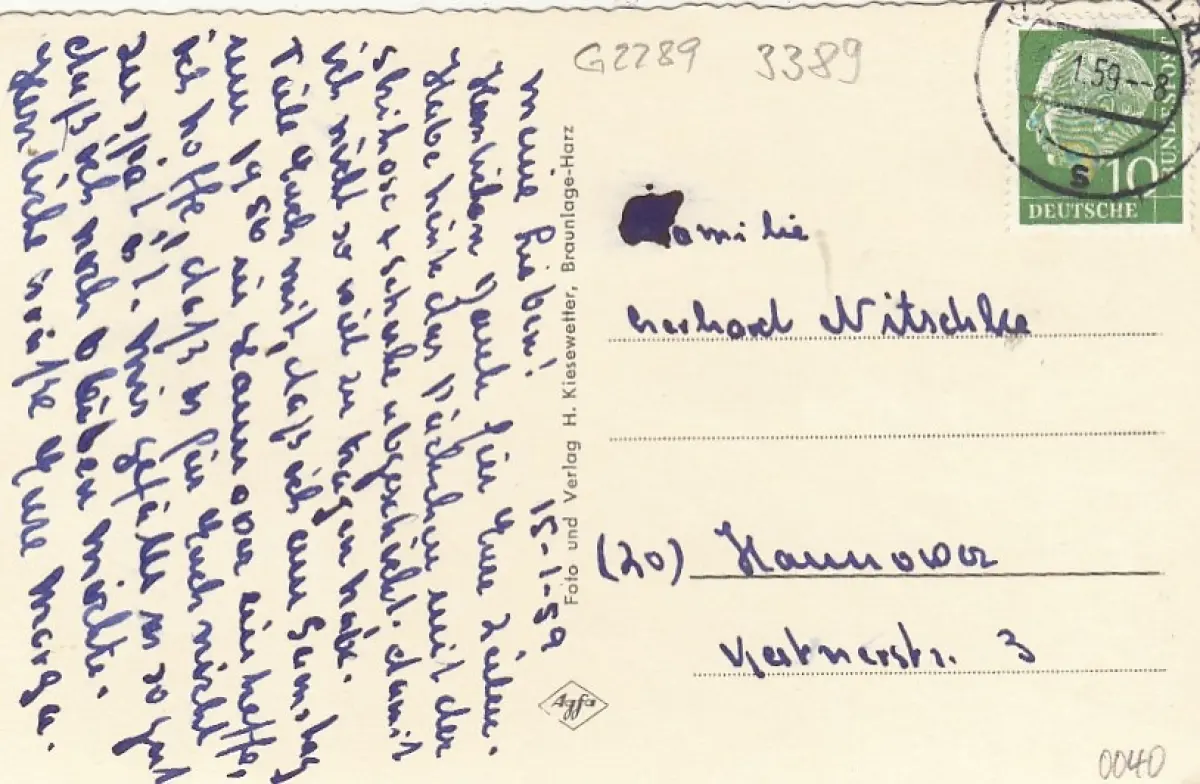 15-1-59
Meine Lieben!
Herzlichen Dank für Eure Zeilen.
Habe heute das Päckchen mit der
Skihose + Schuhe abgeschickt. damit
ich nicht so viel zu tragen habe.
Teile Euch mit, daß ich am Samstag
um 19 56 in Hannover eintreffe,
ich hoffe, daß es für Euch nicht
zu spät ist. Mir gefällt es so gut
daß ich noch bleiben möchte.
Herzliche Grüße Eure Marga.
Foto und Verlag H. Kiesewetter, Braunlage-Harz
Agfa
G2289 3389
1.59--8
S
10
DEUTSCHE
BUNDESPOST
Familie
Gerhard Nitschke
(20) Hannover
Kestnerstr. 3
0040